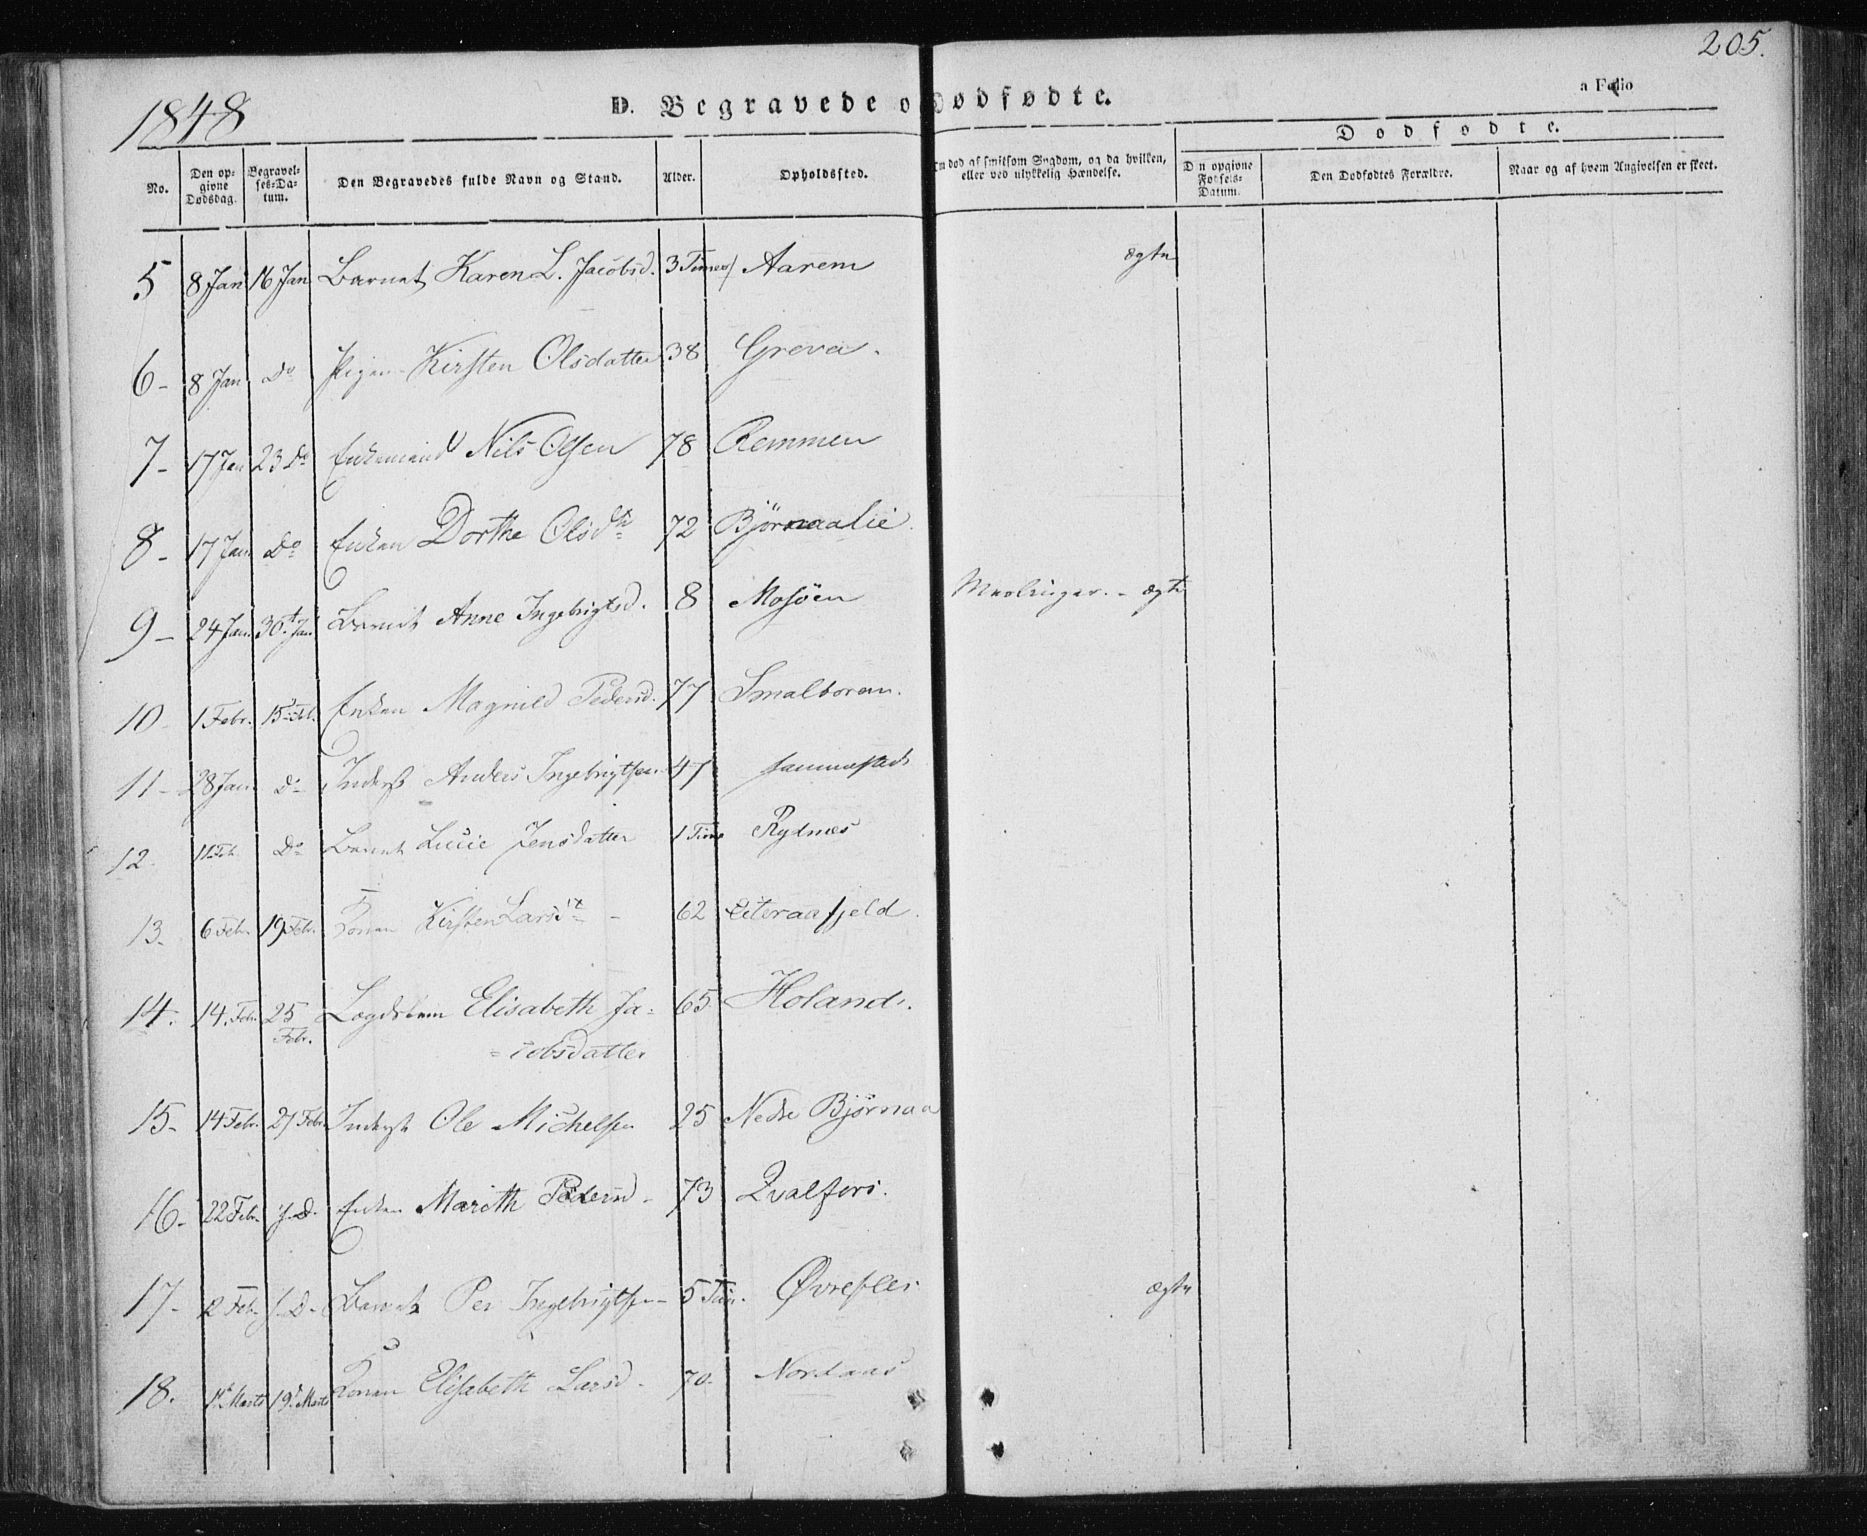 205.
a Folio
1848
D. Begravede o Dødfødte.
Dødfødte.
No.
Den op-
givne
Dødsdag.
Begravel-
ses-Da-
tum.
Den Begravedes fulde Navn og Stand.
Alder.
Opholdsted.
m død af smitsom Sygdom, og da hvilken,
eller ved ulykkelig Hændelse.
D n opgivne
Fødsels-
Datum.
Den Dødfødtes Forældre.
Naar og af hvem Angivelsen er skeet.
5 8 Jan 16 Jan Barnet Karen L. Jacobsd. 3 Timer Aarem ægte
6- 8 Jan Do Pigen Kirsten Olsdatter 38 Greva.
7- 17 Jan 23 Do Enkemand Nils Olsen 78 Remmen
8- 17 Jan Do Enken Dorthe Olsdtr 72 Bjørnaalie.
9- 24 Jan. 30t Jan Barnet Anne Ingebrigtsd. 8 Mosøen Meslinger. - ægte
10- 1 Febr. 15 Feb. Enken Magnild Pedersd. 77 Smalboren.
11- 28 Jan. Do Inderst Anders Ingebrigtsen 47
12. 11 Feb. Do Barnet Lucie Jensdatter 1 Time Rydnes
13. 6 Febr. 19 Febr. Konen Kirsten Larsdt - 62 Eiteraafjeld.
14. 14. Febr 25 Lægdslem Elisabeth Ja- 65 Holand.
Febr.
=cobsdatter
15- 14 Febr. 27 Febr Inderst Ole Michelsen 25 Nedre Bjørnaa
16- 22 Febr. Enken Marith Pedersd - 73 Qvalfors.
17- 2 Feb. Barnet Per Ingebrigtsen - 5 Tim. Øvrefles ægte
18. 1t Marts 19d Marts Konen Elisabeth Larsd - 70. Nordaas